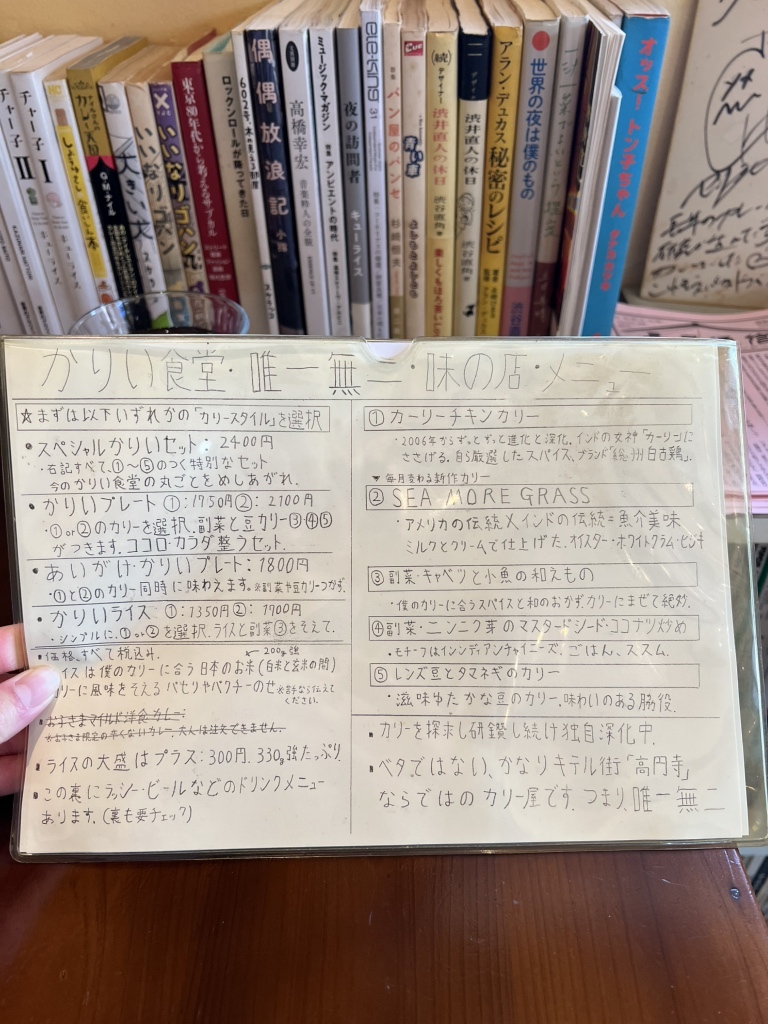 チャー子 II
キューライス
チャー子 I
キューライス
しょうゆさしの食いしん本
カレー天国
G・M・ナイル
大きい犬
スケラッコ
いいなりゴハン
いいなりゴハン
東京80年代から考えるサブカル
ロックンロールが降ってきた日
偶偶放浪記
小指
高橋幸宏
音楽粋人の全貌
ミュージック・マガジン
特集 アンビエントの時代
夜の訪問者
キューライス
ele-king 31
パン屋のパンセ
杉﨑恒夫
青い車
よしもとよしとも
(続)デザイナー 渋井直人の休日
渋谷直角
デザイナー 渋井直人の休日
渋谷直角
アラン・デュカス 秘密のレシピ
世界の夜は僕のもの
オッス!トン子ちゃん
タナカカツキ
かりい食堂・唯一無二・味の店・メニュー
☆まずは以下いずれかの「カリースタイル」を選択
・スペシャルかりいセット: 2400円
・右記すべて、①〜⑤のつく特別なセット
今のかりい食堂の丸ごとをめしあがれ.
・かりいプレート ①:1750円 ②: 2100円
・①or②のカリーを選択、副菜と豆カリー③・④・⑤
がつきます.ココロ・カラダ整うセット.
・あいがけ・かりいプレート: 1800円
・①と②のカリー同時に味わえます。※副菜や豆カリーつかず.
・かりいライス ①:1350円 ②: 1700円
・シンプルに、①or②を選択.ライスと副菜③をそえて.
・価格、すべて税込み.
← 200g強
イスは僕のカリーに合う日本のお米(白米と玄米の間)
リーに風味をそえるパセリやパクチーのせ ※苦手なら伝えてください.
・お子さまマイルド洋食カレー:
※お子さま限定の辛くないカレー、大人は注文できません.
・ライスの大盛はプラス:300円. 330g強たっぷり.
・この裏にラッシー・ビールなどのドリンクメニュー
あります.(裏も要チェック)
① カーリーチキンカリー
・2006年からずっとずっと進化と深化.インドの女神「カーリー」に
ささげる.自ら厳選したスパイス、ブランド「総州古白鶏」.
▼毎月変わる新作カリー
② SEA MORE GRASS
・アメリカの伝統×インドの伝統=魚介美味
ミルクとクリームで仕上げた、オイスター・ホワイトクラム・ヒジキ
③ 副菜・キャベツと小魚の和えもの
・僕のカリーに合うスパイスと和のおかず.カリーにまぜて絶妙.
④ 副菜・ニンニク芽のマスタードシード・ココナツ炒め
・モチーフはインディアンチャイニーズ、ごはん、ススム.
⑤ レンズ豆とタマネギのカリー
・滋味ゆたかな豆のカリー.味わいのある脇役.
・カリーを探求し研鑽し続け独自深化中.
・ベタではない、かなりキテル街「高円寺」
ならではのカリー屋です.つまり、唯一無二